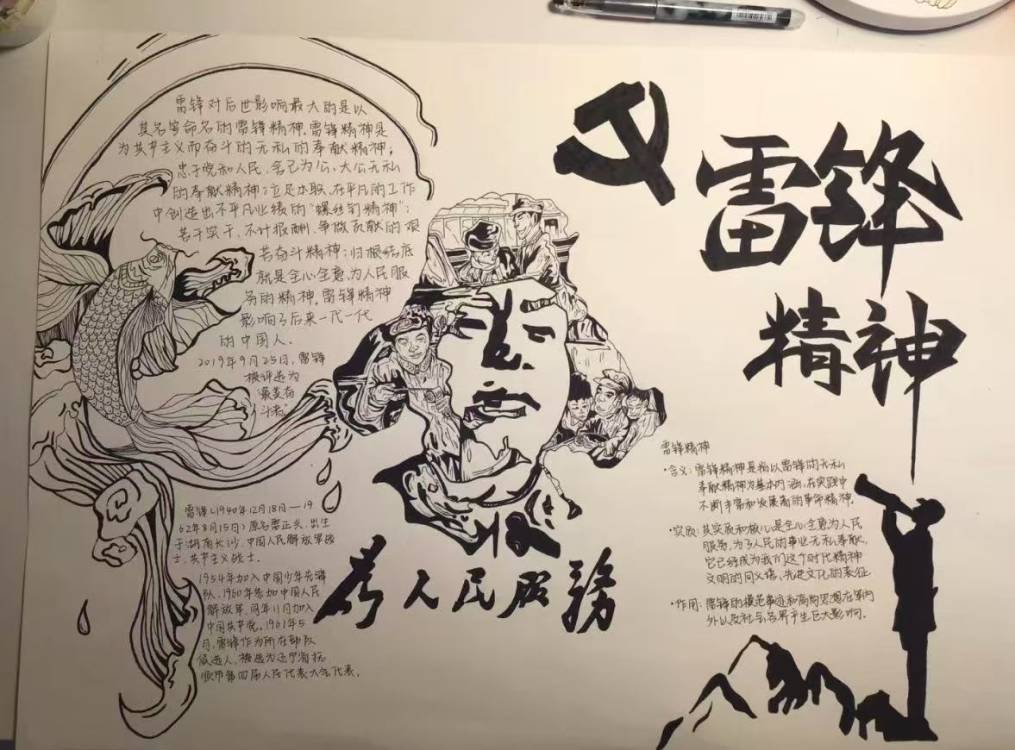 雷锋对后世影响最大的是以
其名字命名的雷锋精神,雷锋精神是
为共产主义而奋斗的无私的奉献精神;
忠于党和人民、舍己为公、大公无私
的奉献精神;立足本职、在平凡的工作
中创造出不平凡业绩的"螺丝钉精神";
苦干实干、不计报酬、争做贡献的艰
苦奋斗精神;归根结底
就是全心全意为人民服
务的精神,雷锋精神
影响了后来一代一代
的中国人.
2019年9月25日,雷锋
被评选为
"最美奋
斗者"
雷锋
精神
雷锋(1940年12月18日—19
62年8月15日)原名雷正兴,出生
于湖南长沙,中国人民解放军战
士、共产主义战士.
1954年加入中国少年先锋
队,1960年参加中国人民
解放军,同年11月加入
中国共产党.1961年5
月,雷锋作为所在部队
候选人,被选为辽宁省抚
顺市第四届人民代表大会代表.
為人民服務
雷锋精神
·含义:雷锋精神是指以雷锋的无私
奉献精神为基本内涵,在实践中
不断丰富和发展着的革命精神.
·实质:其实质和核心是全心全意为人民
服务,为了人民的事业无私奉献,
它已经成为我们这个时代精神
文明的同义语、先进文化的表征
·作用:雷锋的模范事迹和高尚思想在国内
外以及社会各界产生巨大影响.